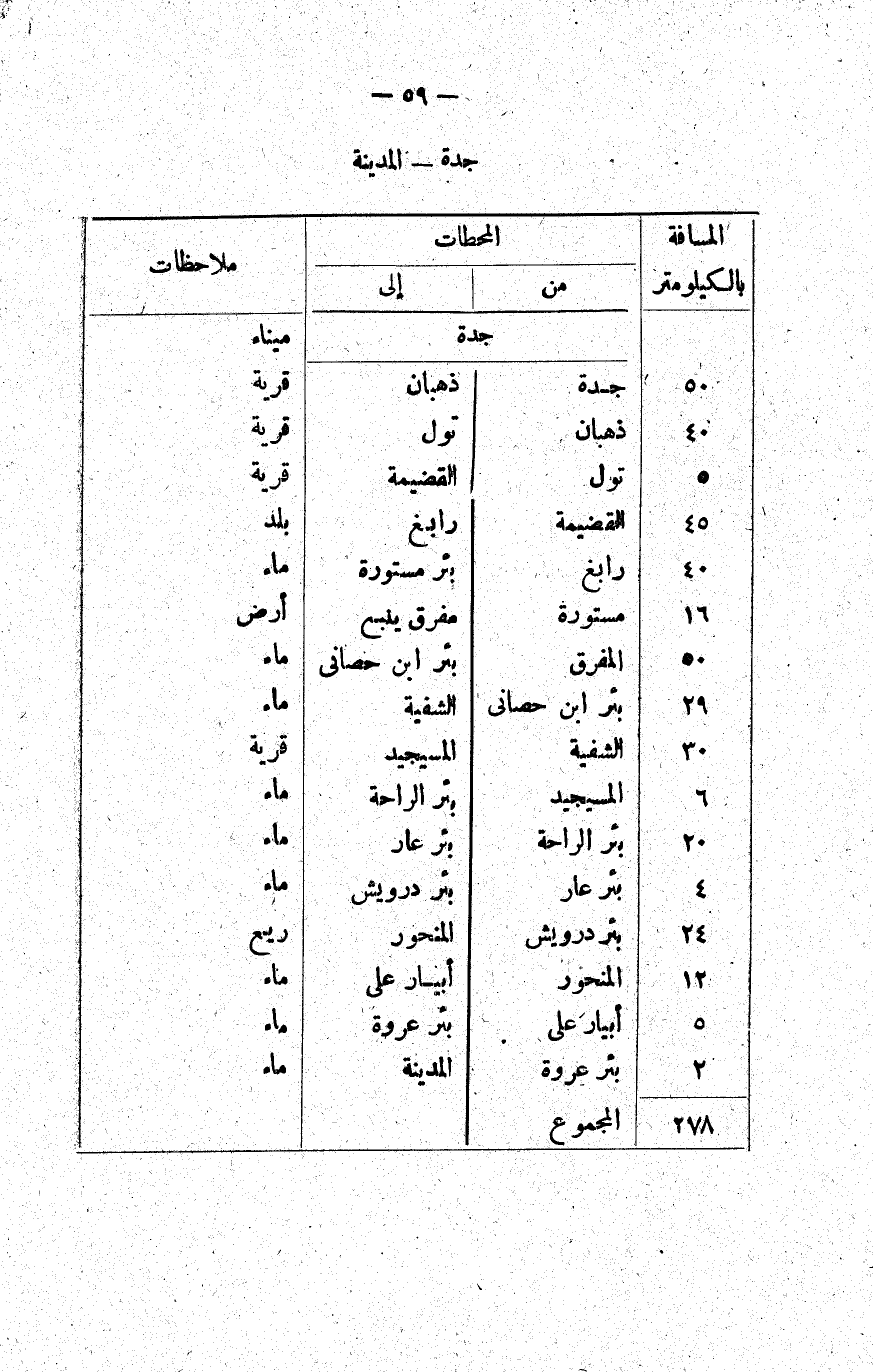 — ٥٩ —
جدة — المدينة
المسافة بالكيلومتر | المحطات | ملاحظات
من | إلى
جدة | ميناء
٥٠ | جدة | ذهبان | قرية
٤٠ | ذهبان | تول | قرية
٥ | تول | القضيمة | قرية
٤٥ | القضيمة | رابغ | بلد
٤٠ | رابغ | بئر مستورة | ماء
١٦ | مستورة | مفرق ينبع | أرض
٥٠ | المفرق | بئر ابن حصانى | ماء
٢٩ | بئر ابن حصانى | الشفية | ماء
٣٠ | الشفية | المسيجيد | قرية
٦ | المسيجيد | بئر الراحة | ماء
٢٠ | بئر الراحة | بئر عار | ماء
٤ | بئر عار | بئر درويش | ماء
٢٤ | بئر درويش | المنحور | ريع
١٢ | المنحور | أبيار على | ماء
٥ | أبيار على | بئر عروة | ماء
٢ | بئر عروة | المدينة | ماء
٢٧٨ | المجموع